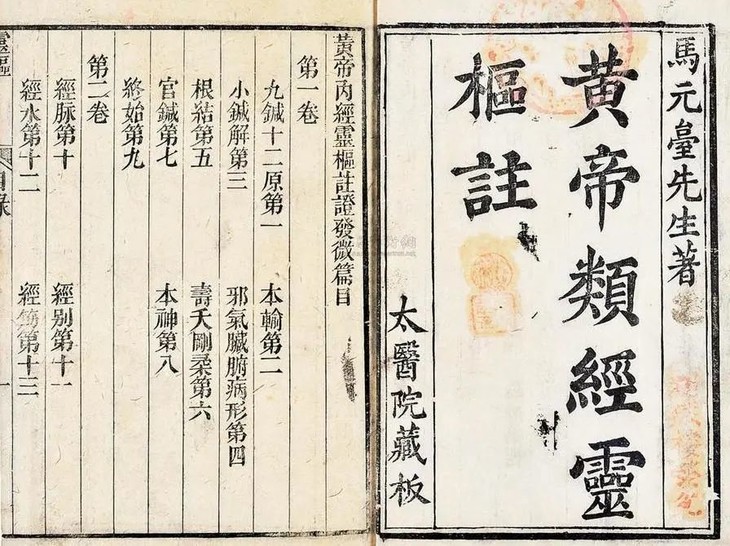 馬元臺先生著
黄帝類經靈
樞註
太醫院藏板
黃帝內經靈樞註證發微篇目
第一卷
九鍼十二原第一 本輸第二
小鍼解第三 邪氣臟腑病形第四
根結第五 壽夭剛柔第六
官鍼第七 本神第八
終始第九
第二卷
經脉第十 經别第十一
經水第十二 經筋第十三
目錄
一